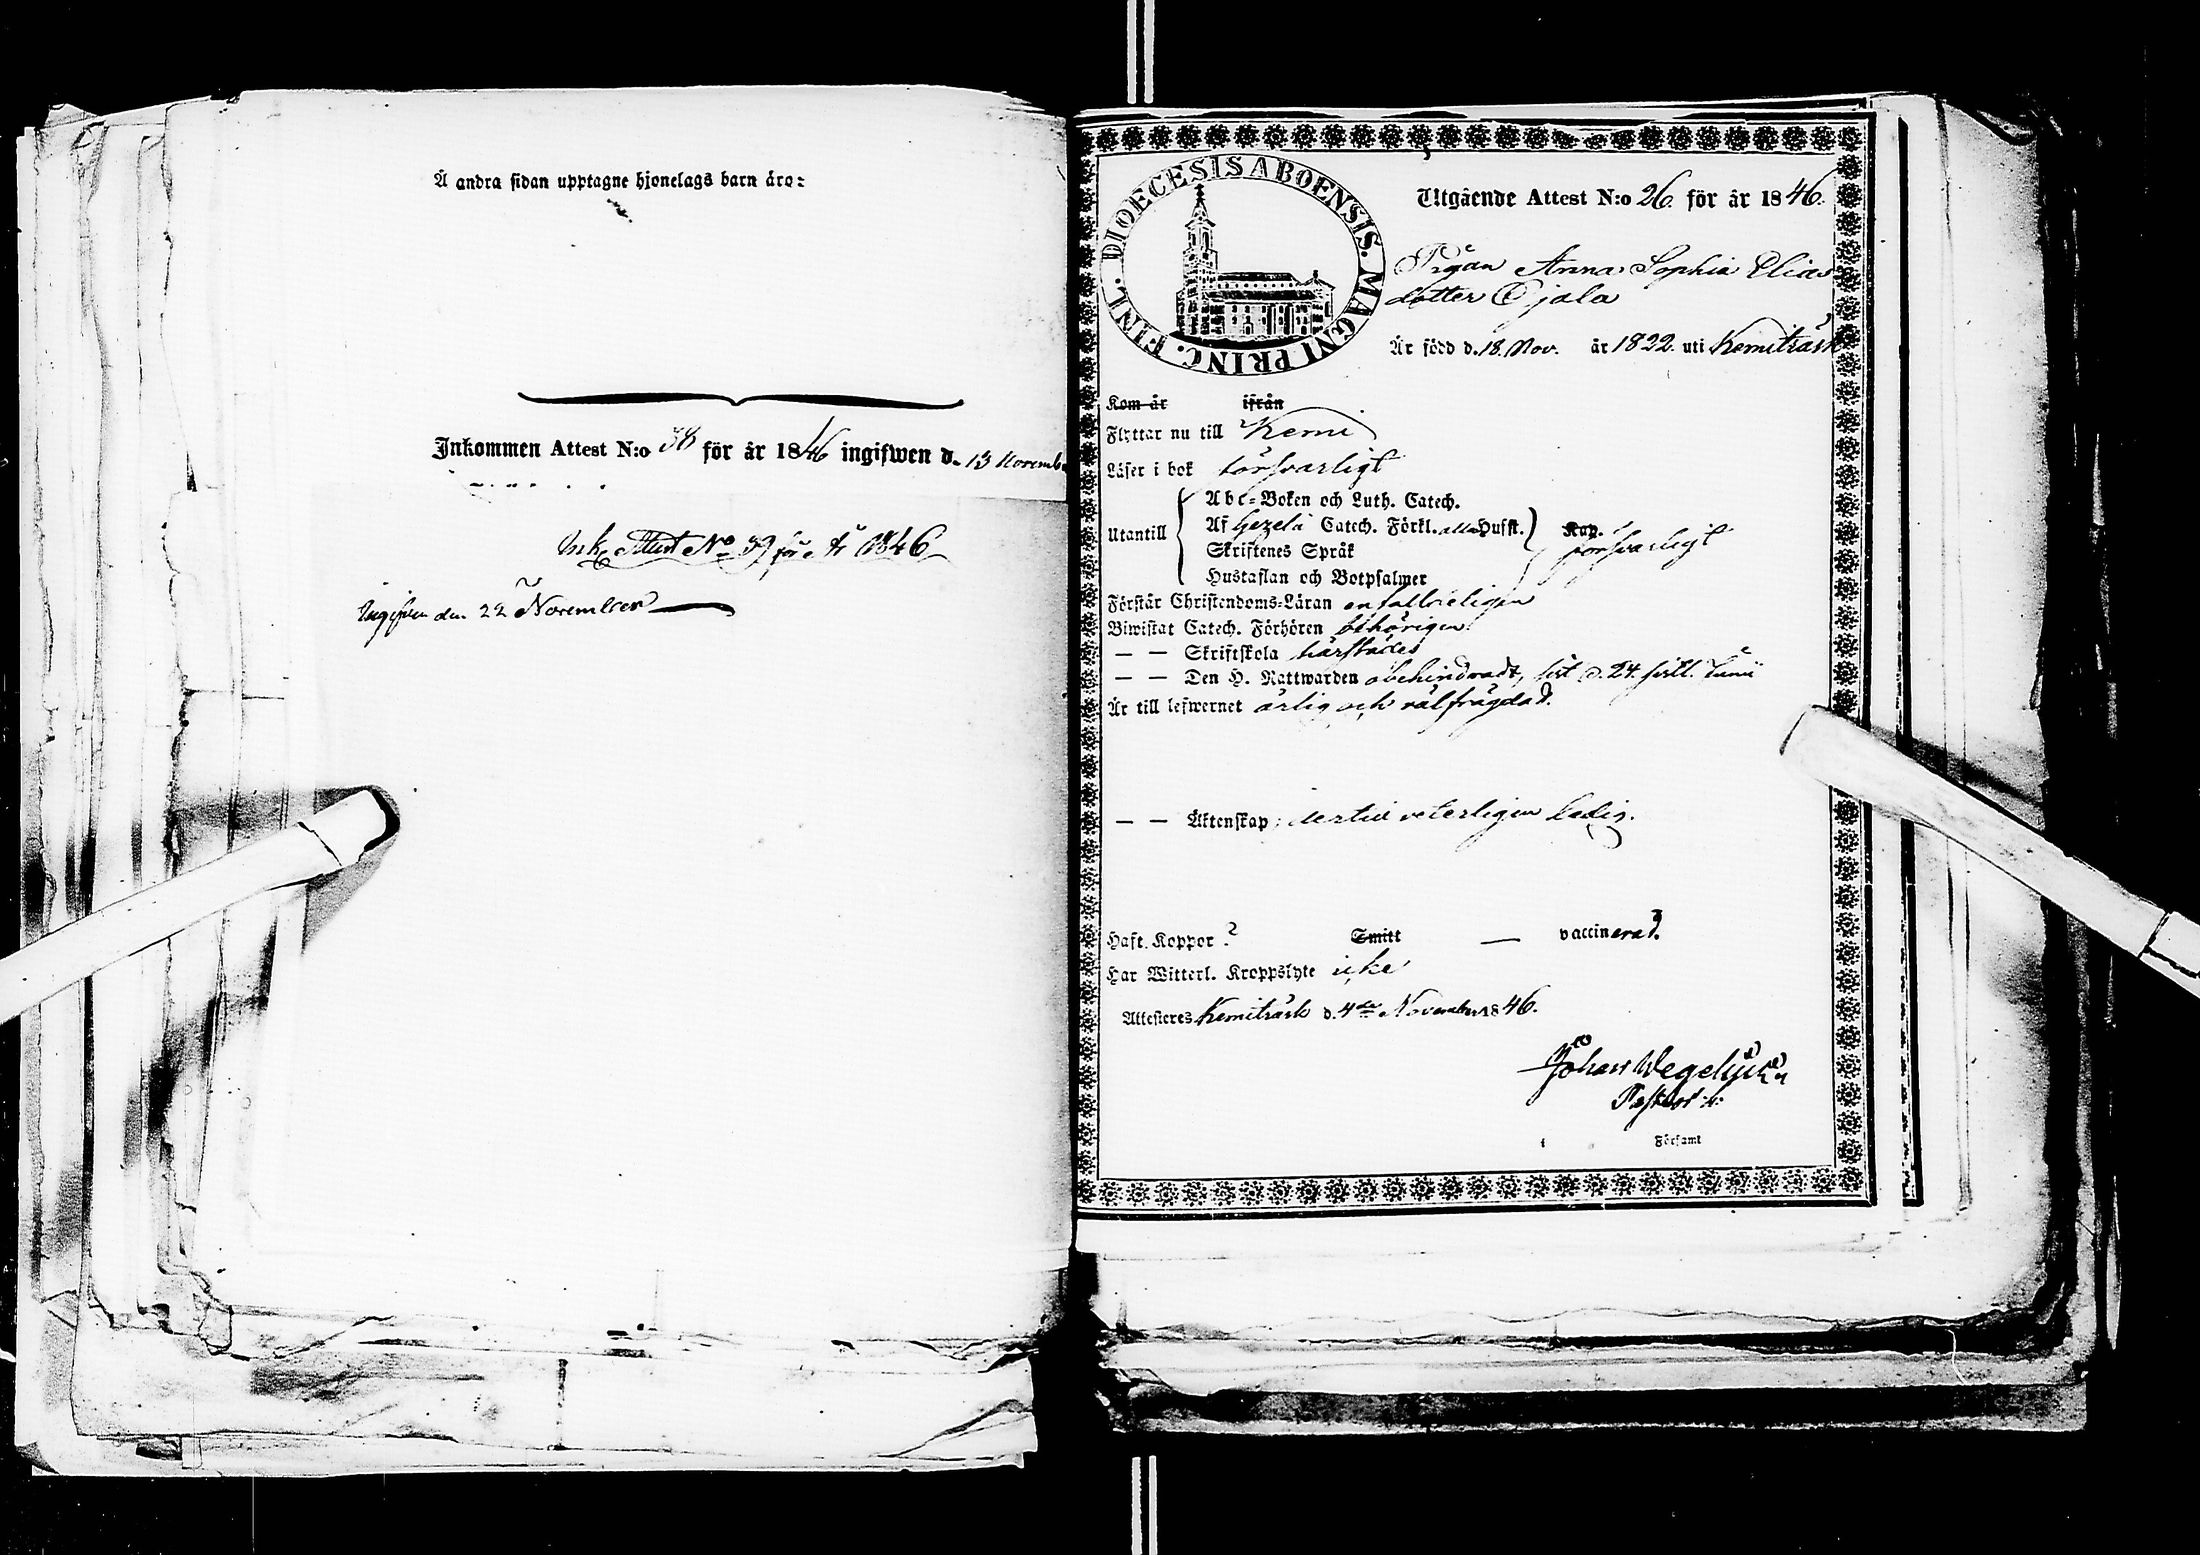 Å andra sidan upptagne hjonelags barn äro:
Inkommen Attest N:o 38 för år 1846 ingifwen d. 13 Novemb
Ink. Attest No 39 för år 1846
Ingifven den 22 November
DIOECESIS ABOENSIS. MAGNI PRINC. FINL.
Utgående Attest N:o 26. för år 1846.
Pigan Anna Sophia Elias
dotter Ojala
Är född d. 18. Nov. år 1822. uti Kemiträsk
Kom år ifrån
Flyttar nu till Kemi
Läser i bok försvarligt
Utantill
Abc-Boken och Luth. Catech.
Af Gezelii Catech. Förkl. alla Hufst. Kap.
Skriftenes Språk försvarligt
Hustaflan och Botpsalmer
Förstår Christendoms-Läran enfalldeligen
Biwistat Catech. Förhören behörigen
— — Skriftskola härstädes
— — Den H. Nattwarden obehindradt, sist d. 24. sistl. Junii
Är till lefwernet ärlig och välfrägdad.
— — Äktenskap veterligen ledig.
Haft Koppor ? Smitt — vaccinerad.
Har Witterl. Kroppslyte icke
Attesteres Kemiträsk d. 4de November 1846.
Johan Wegelius
Pastor
i Församl